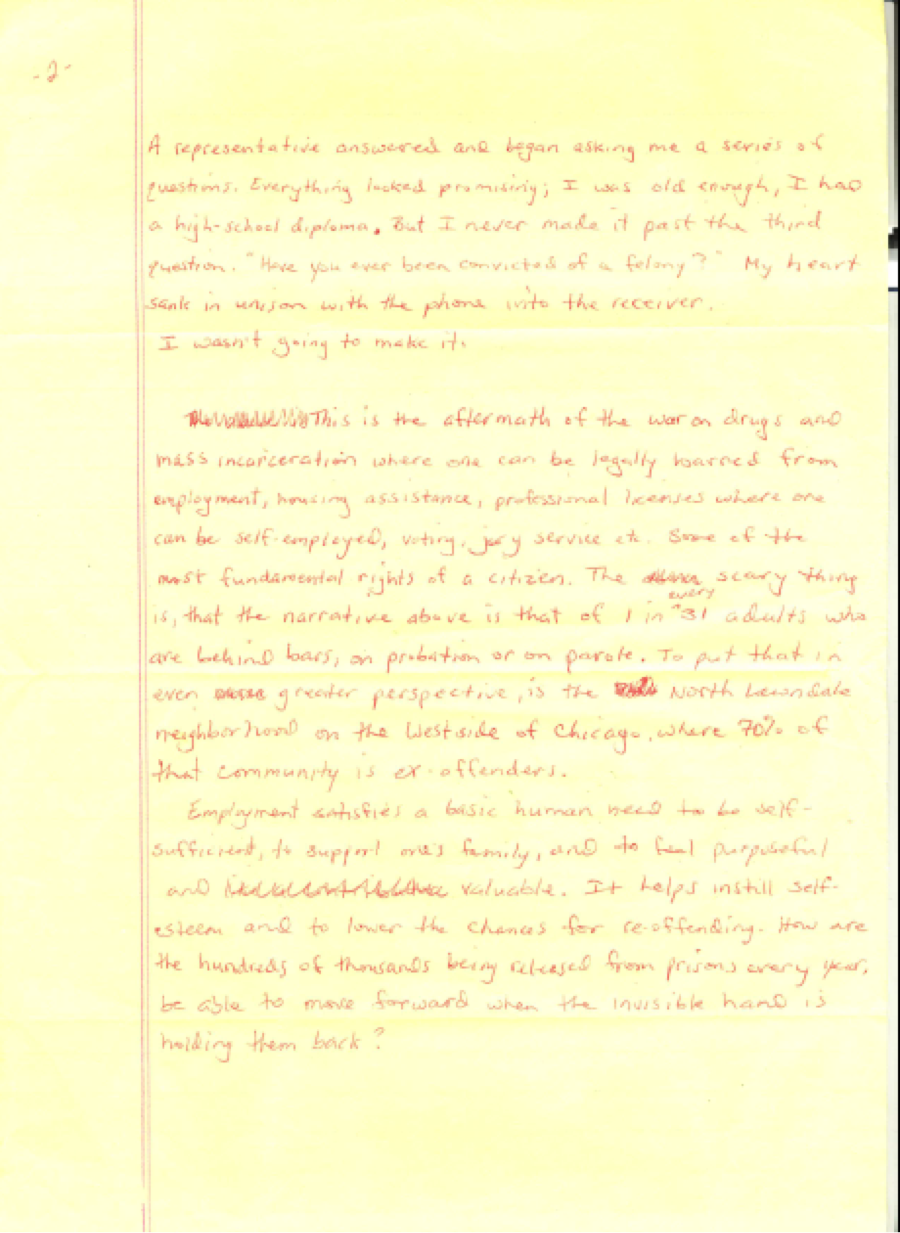 -2-
A representative answered and began asking me a series of
questions. Everything looked promising; I was old enough, I had
a high-school diploma. But I never made it past the third
question. "Have you ever been convicted of a felony?" My heart
sank in unison with the phone into the receiver.
I wasn't going to make it.
This is the aftermath of the war on drugs and
mass incarceration where one can be legally barred from
employment, housing assistance, professional licenses where one
can be self-employed, voting, jury service etc. Some of the
most fundamental rights of a citizen. The scary thing
is, that the narrative above is that of 1 in every 31 adults who
are behind bars, on probation or on parole. To put that in
even greater perspective, is the North Lawndale
neighborhood on the Westside of Chicago, where 70% of
that community is ex-offenders.
Employment satisfies a basic human need to be self-
sufficient, to support one's family, and to feel purposeful
and valuable. It helps instill self-
esteem and to lower the chances for re-offending. How are
the hundreds of thousands being released from prisons every year,
be able to move forward when the invisible hand is
holding them back?